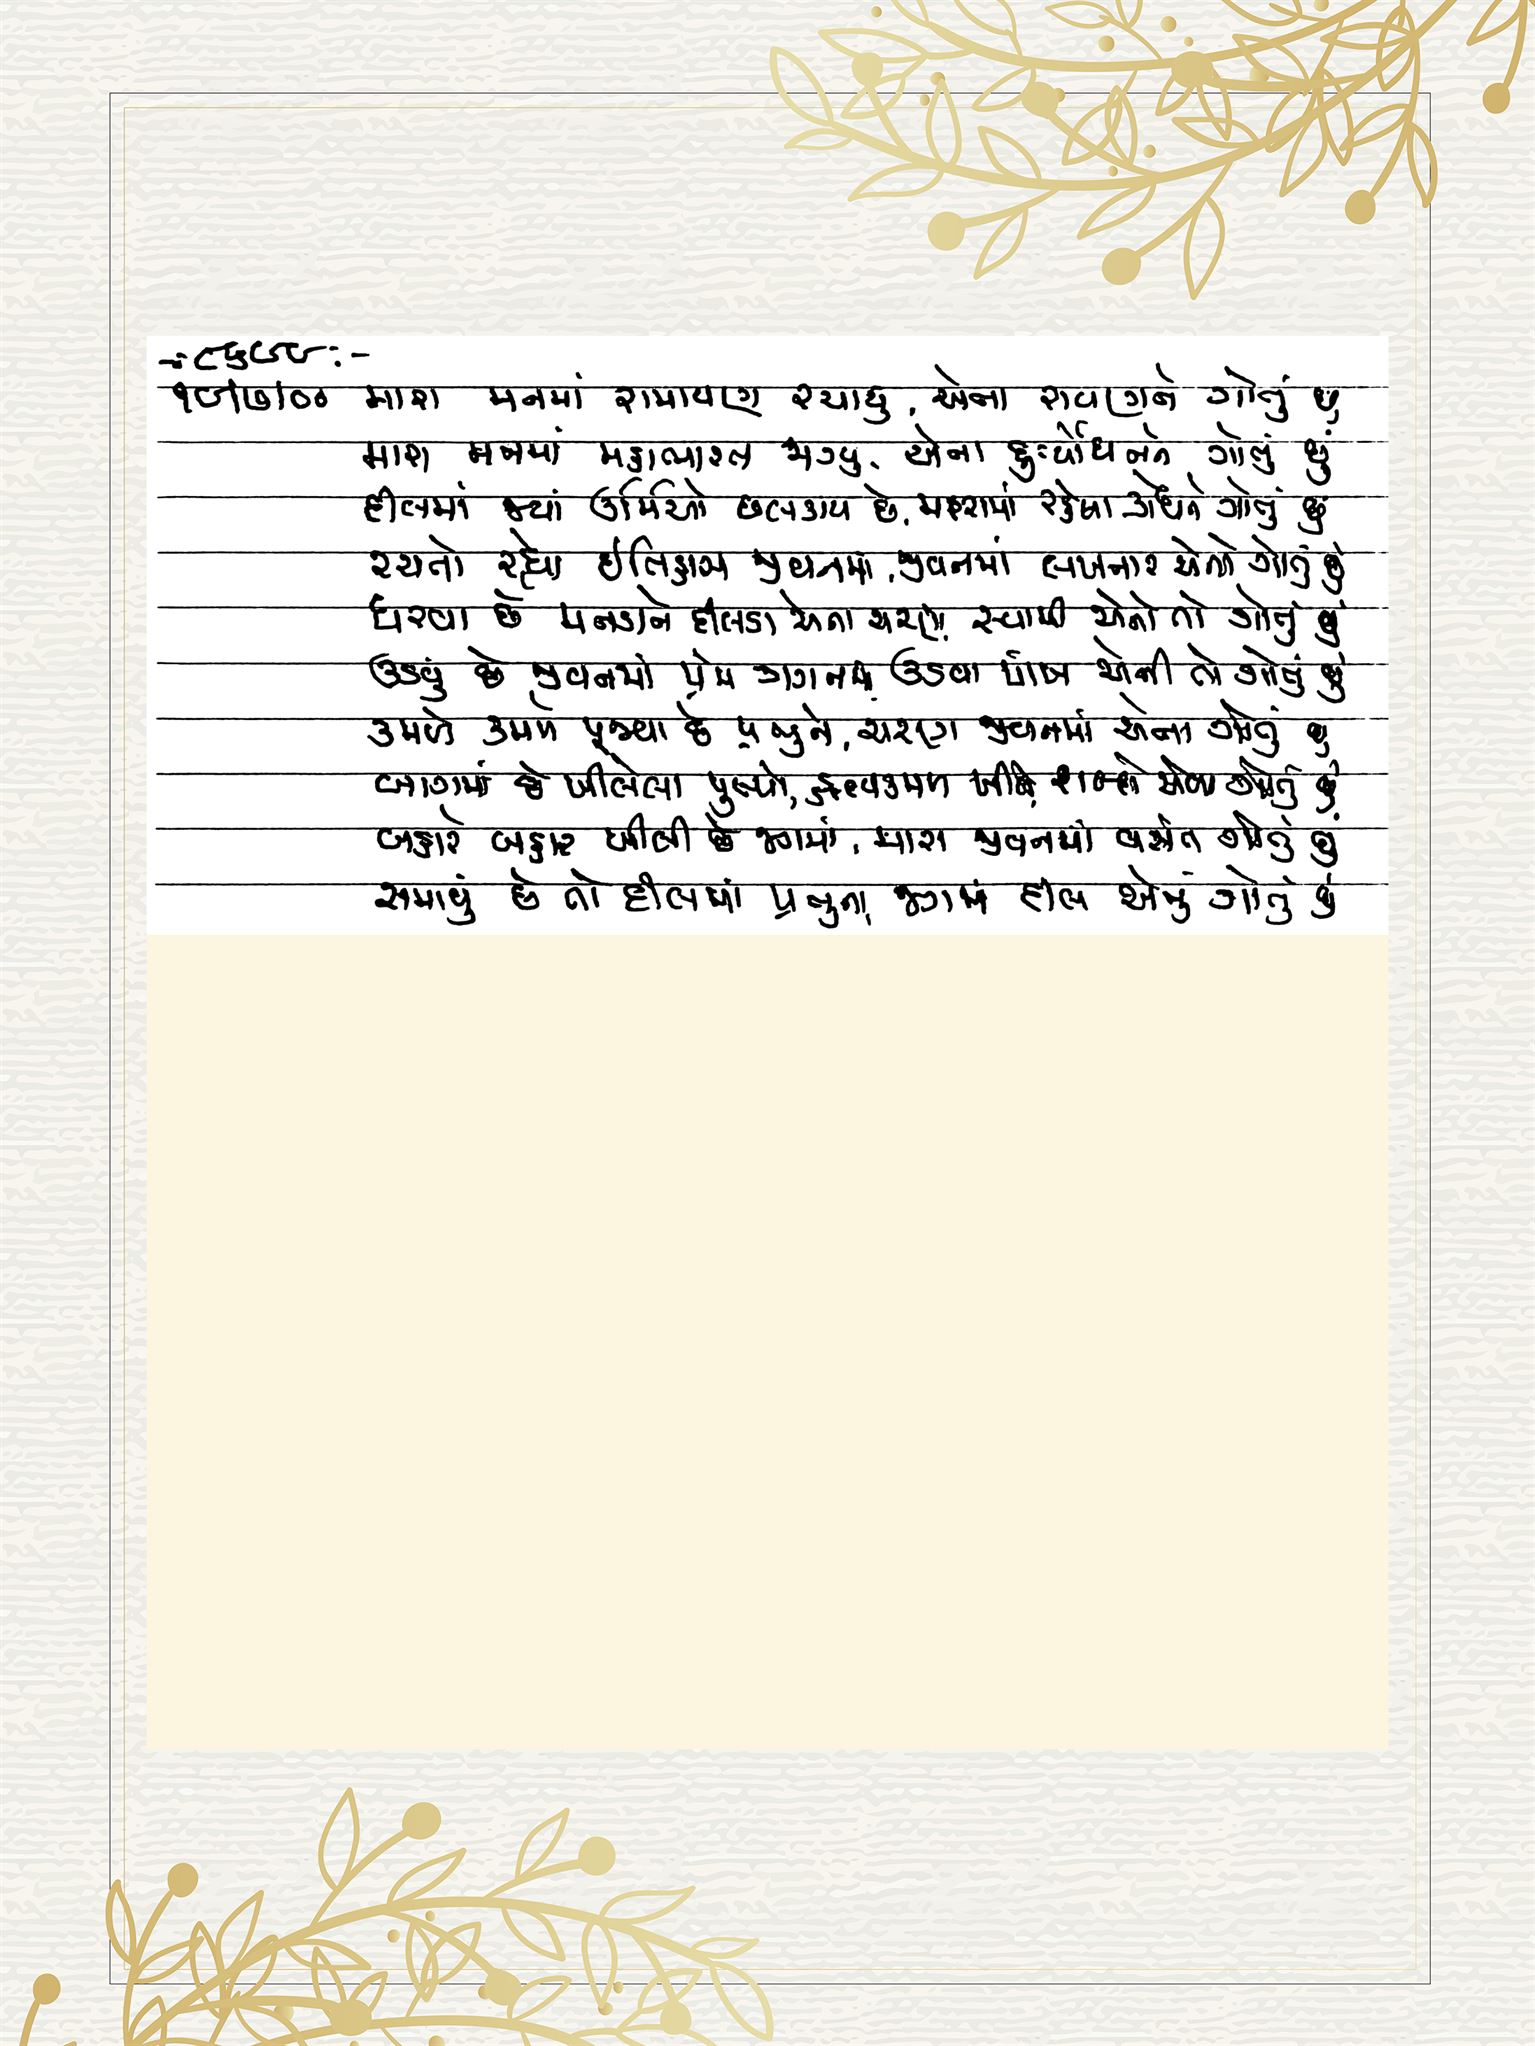 -:૮૬૯૯:-
૧૯/૭/૦૦ મારા મનમાં રામાયણ રચાયુ, એના રાવણને ગોતું છું
મારા મનમાં મહાભારત મચ્યુ. એના દુઃર્યોધનને ગોતું છું
દીલમાં જ્યાં ઉર્મિઓ છલકાય છે, રહેલા ગોતું છું
રચતો રહ્યો ઈતિહાસ જીવનમાં, જીવનમાં લખનાર એનો ગોતું છું
ધરવા છે મનડાને દીલડા એના ચરણે, સ્વામી એનો તો ગોતું છું
ઉડવું છે જીવનમાં પ્રેમ ગગનમાં, ઉડવા પાંખ એની તો ગોતું છું
કમળે કમળે પૂજ્યા છે પ્રભુને, ચરણ જીવનમાં એના ગોતું છું
બાગમાં છે ખીલેલા પુષ્પો, હૃદયકમળ ખીલે, શબ્દો એવા ગોતું છું
બહારે બહાર ખીલી છે જગમાં, મારા જીવનમાં વસંત ગોતું છું
સમાવું છે તો દીલમાં પ્રભુના, જગમાં દીલ એનું ગોતું છું